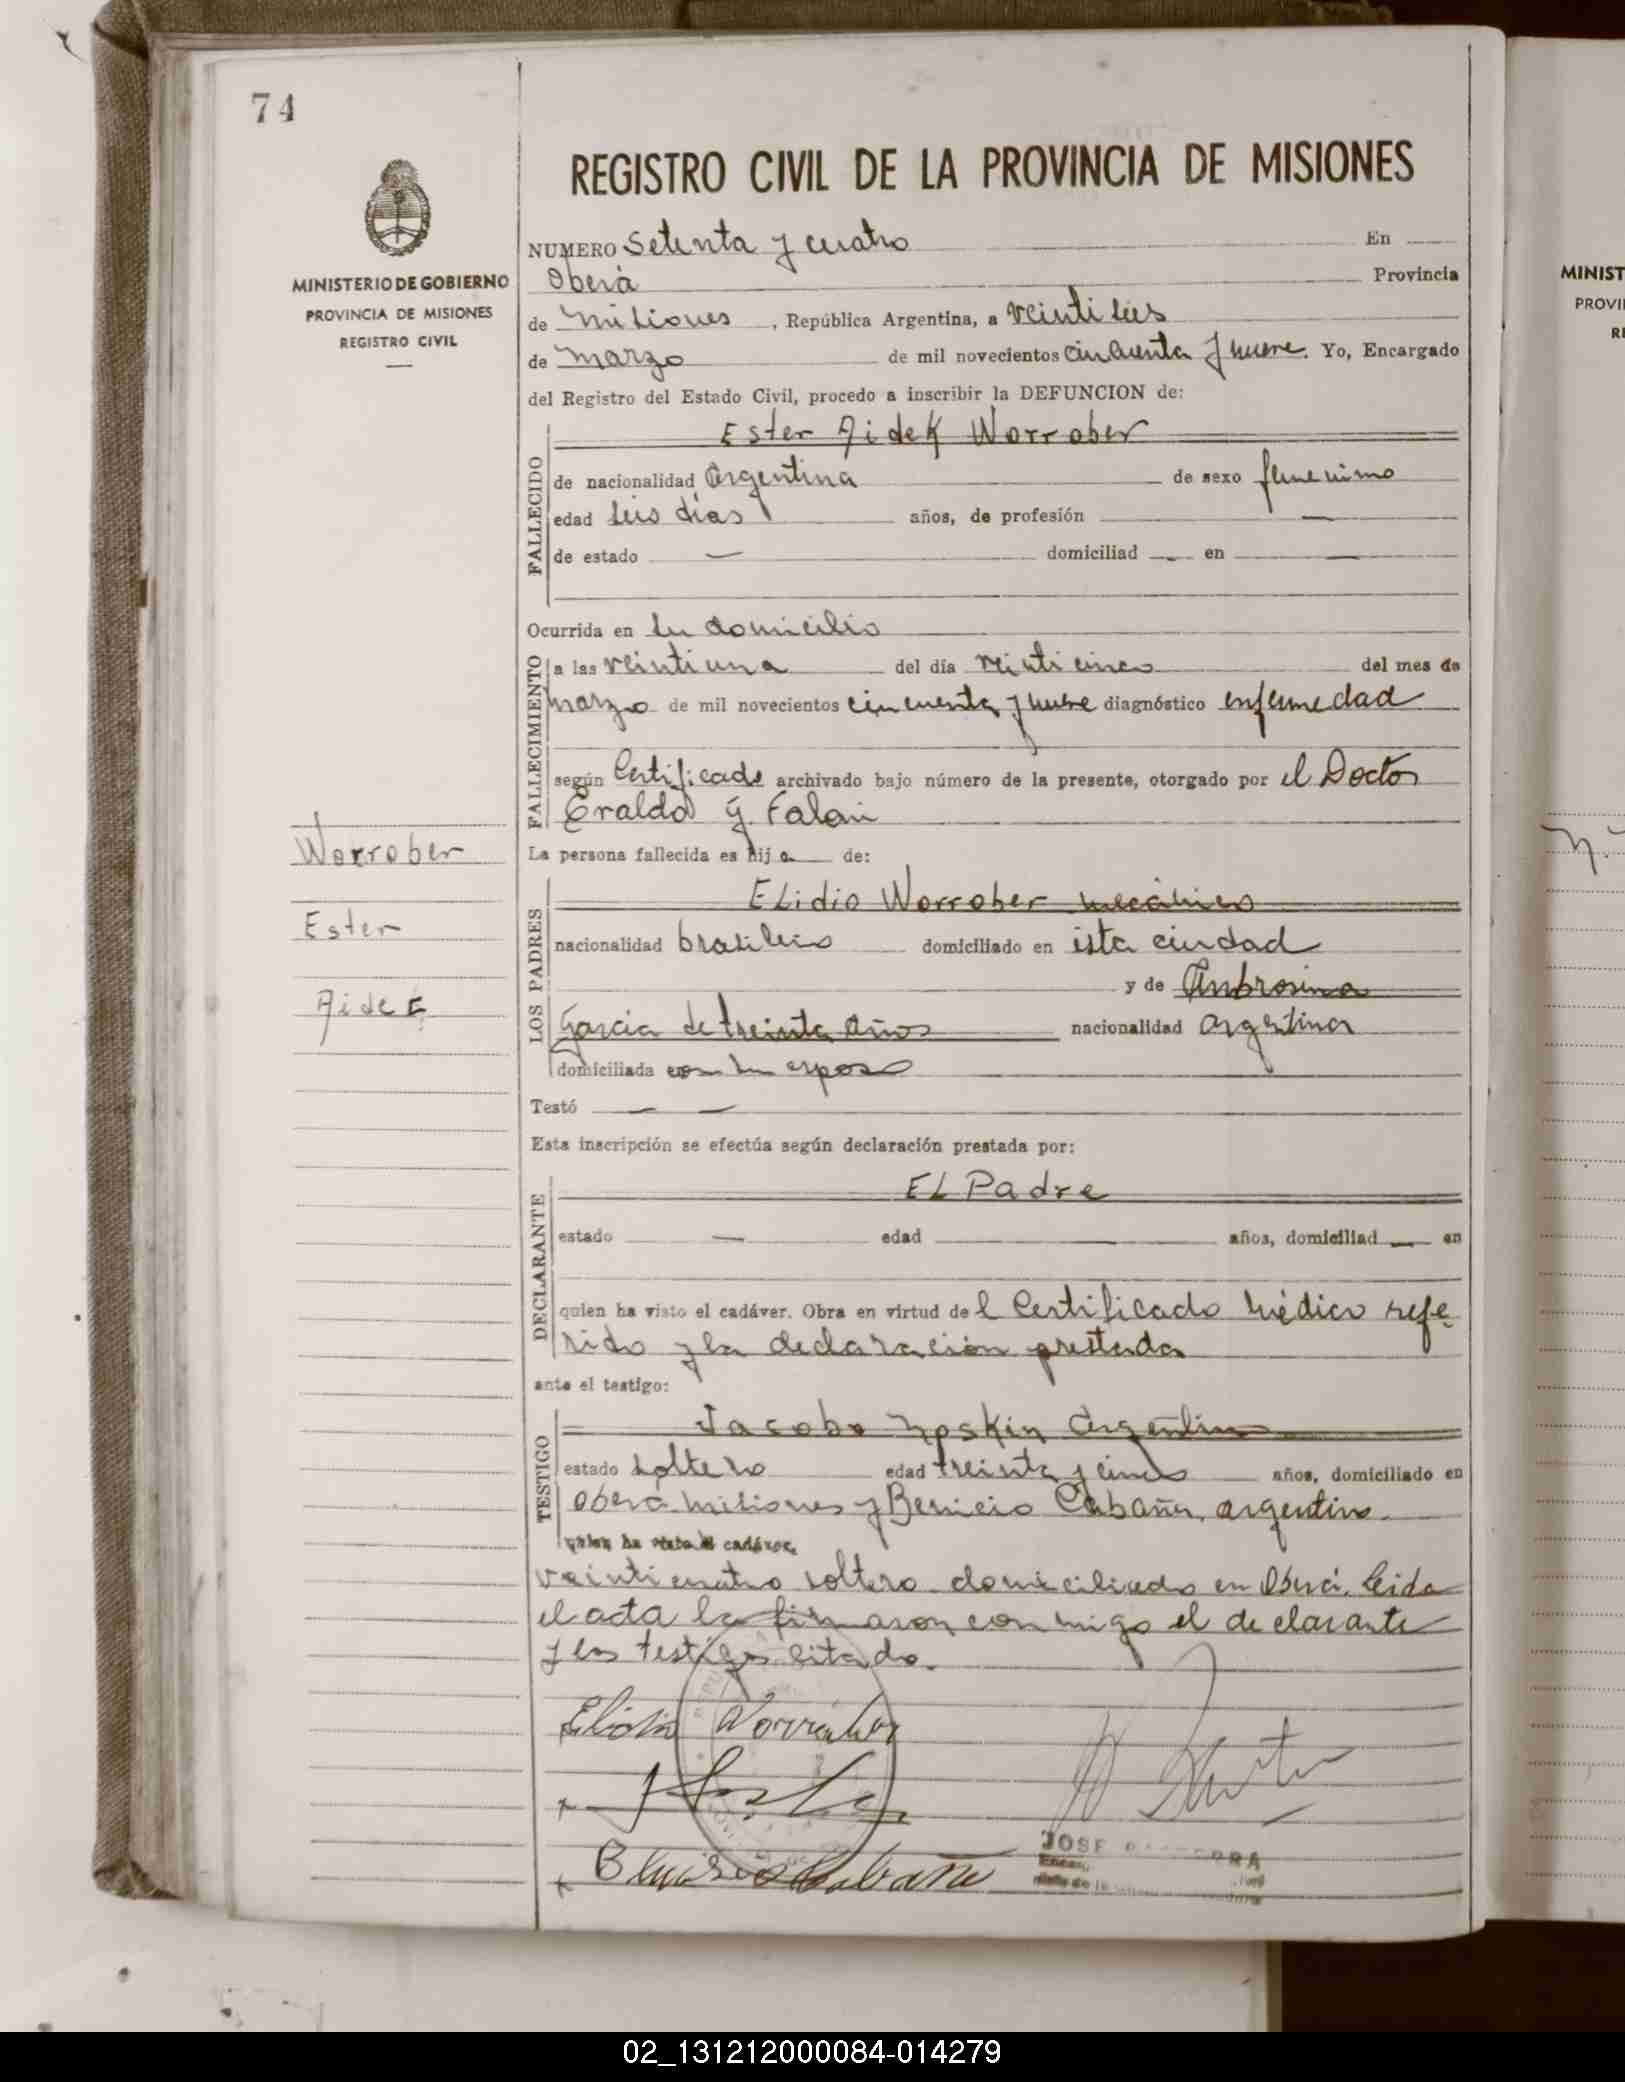 74
REGISTRO CIVIL DE LA PROVINCIA DE MISIONES
MINISTERIO DE GOBIERNO
PROVINCIA DE MISIONES
REGISTRO CIVIL
NUMERO Setenta y cuatro En
Oberá Provincia
de Misiones, República Argentina, a veintiseis
de Marzo de mil novecientos cincuenta y nueve. Yo, Encargado
del Registro del Estado Civil, procedo a inscribir la DEFUNCION de:
Ester Aidee Worrober
FALLECIDO
de nacionalidad Argentina de sexo femenino
edad seis días años, de profesión —
de estado — domiciliad — en —
Ocurrida en su domicilio
FALLECIMIENTO
a las veintiuna del día veinticinco del mes de
marzo de mil novecientos cincuenta y nueve diagnóstico enfermedad
según Certificado archivado bajo número de la presente, otorgado por el Doctor
Eraldo
La persona fallecida es hija de:
Worrober
Ester
Aidee
LOS PADRES
Elidio Worrober mecánico
nacionalidad brasilero domiciliado en esta ciudad
y de Ambrosina
Garcia de treinta años nacionalidad argentina
domiciliada con su esposo
Testó — —
Esta inscripción se efectúa según declaración prestada por:
DECLARANTE
El Padre
estado — edad — años, domiciliad — en
quien ha visto el cadáver. Obra en virtud del Certificado Médico refe
rido y la declaración prestada
ante el testigo:
TESTIGO
Jacobo argentino
estado soltero edad treinta y cinco años, domiciliado en
Oberá Misiones y Benicio Cabaña, argentino.
quien ha visto el cadáver.
veinticuatro soltero domiciliado en Oberá. Leida
el acta la firmaron conmigo el declarante
y los testigos citado.
Elidio Worrober
Cabaña
JOSE
02_131212000084-014279
MINIST
PROVI
RE